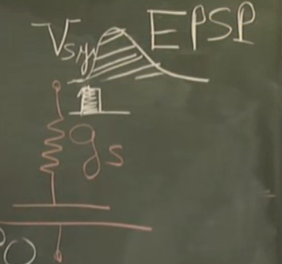 Vsyn EPSP
gs